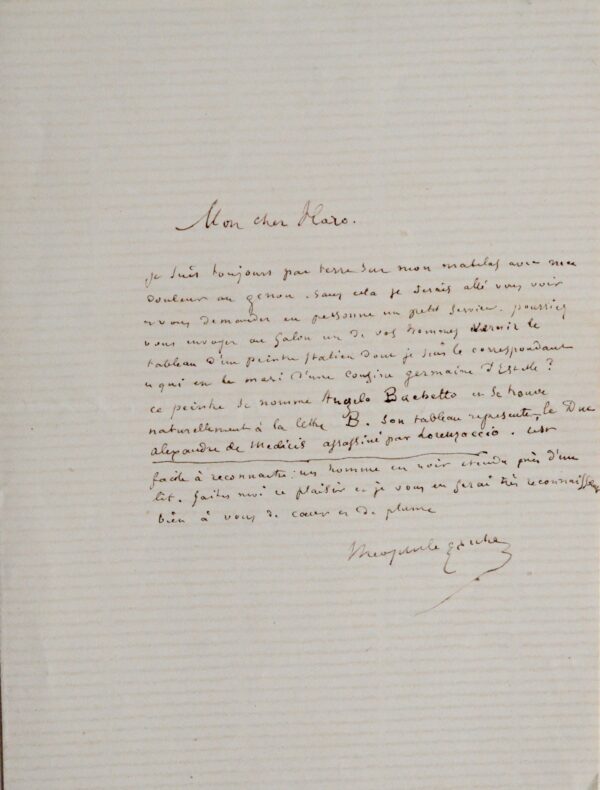 Mon cher Haro.
je suis toujours par terre sur mon matelas avec ma
douleur au genou. sans cela je serais allé vous voir
et vous demander en personne un petit service. pourriez
vous envoyer au Salon un de vos hommes vernir le
tableau d'un peintre italien dont je suis le correspondant
et qui est le mari d'une cousine germaine d'Estelle?
ce peintre se nomme Angelo Bachetto et se trouve
naturellement à la lettre B. Son tableau représente, le Duc
alexandre de Medicis assassiné par Lorenzaccio. c'est
facile à reconnaitre: un homme en noir etendu près d'un
lit. faites moi ce plaisir et je vous en serai très reconnaissant
bien à vous de cœur et de plume
Theophile Gautier